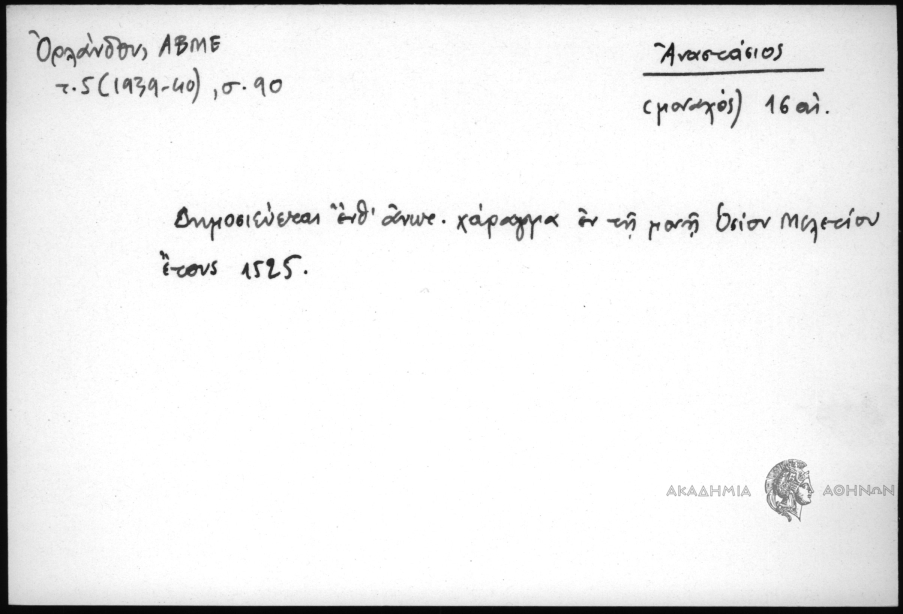 Ὀρλάνδου, ΑΒΜΕ
τ. 5 (1939-40), σ. 90
Ἀναστάσιος
(μοναχός) 16 αἰ.
Δημοσιεύεται ἔνθ' ἄνωτ. χάραγμα ἐν τῇ μονῇ Ὁσίου Μελετίου
ἔτους 1525.
ΑΚΑΔΗΜΙΑ ΑΘΗΝΩΝ